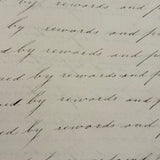 rewards and p
d by rewards and pu
by rewards and
ed by rewards and p
by rewards and
ed by rewards and pu
by rewards and